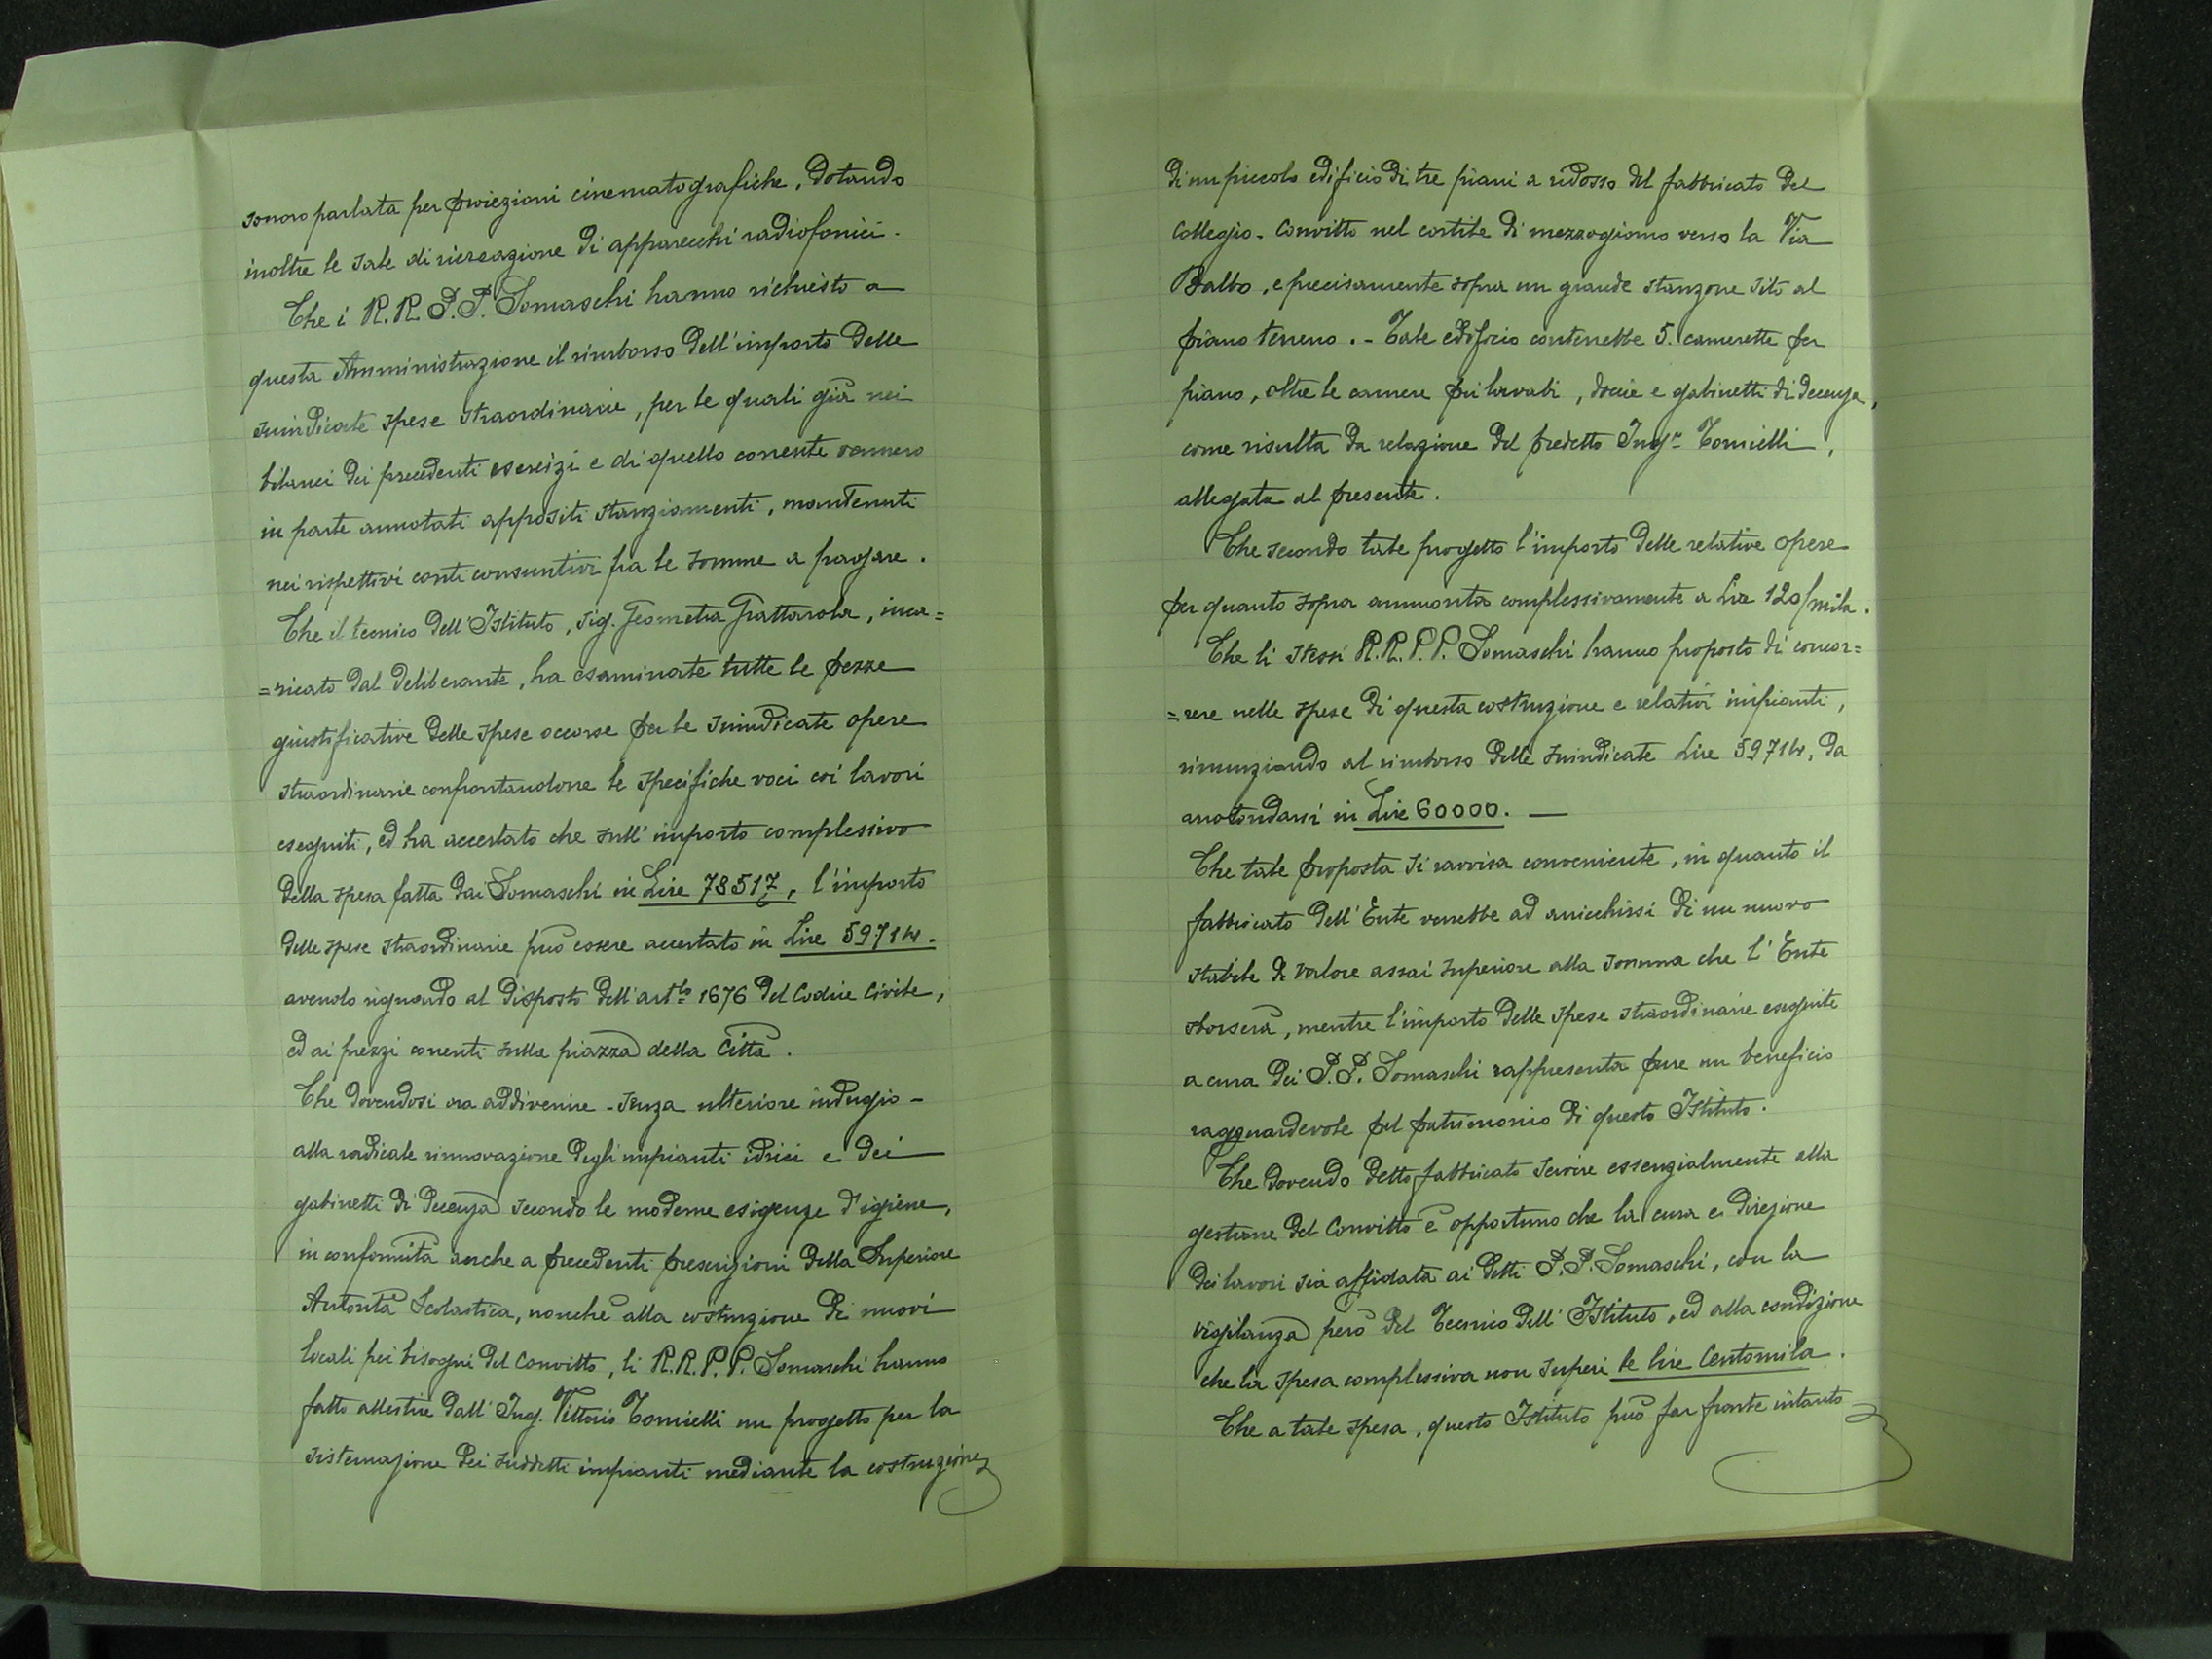 sonoro parlata per proiezioni cinematografiche, dotando
inoltre le sale di ricreazione di apparecchi radiofonici.
Che i R.R. P.P. Somaschi hanno richiesto a
questa Amministrazione il rimborso dell'importo delle
suindicate spese straordinarie, per le quali già nei
bilanci dei precedenti esercizi e di quello corrente vennero
in parte annotati appositi stanziamenti, mantenuti
nei rispettivi conti consuntivi fra le somme a pagare.
Che il tecnico dell'Istituto, Sig. Geometra Grattarola, inca=
=ricato dal deliberante, ha esaminate tutte le pezze
giustificative delle spese occorse per le suindicate opere
straordinarie confrontandone le specifiche voci coi lavori
eseguiti, ed ha accertato che sull'importo complessivo
della spesa fatta dai Somaschi in Lire 78517, l'importo
delle spese straordinarie può essere accertato in Lire 59714.
avendo riguardo al disposto dell'art.lo 1676 del Codice Civile,
ed ai prezzi correnti sulla piazza della Città.
Che dovendosi ora addivenire - senza ulteriore indugio -
alla radicale rinnovazione degli impianti idrici e dei
gabinetti di decenza secondo le moderne esigenze d'igiene,
in conformità anche a precedenti prescrizioni della Superiore
Autorità Scolastica, nonchè alla costruzione di nuovi
locali pei bisogni del Convitto, li R.R.P.P. Somaschi hanno
fatto allestire dall'Ing. Vittorio Tornielli un progetto per la
sistemazione dei suddetti impianti mediante la costruzione
di un piccolo edificio di tre piani a ridosso del fabbricato del
Collegio-Convitto nel cortile di mezzogiorno verso la Via
Balbo, e precisamente sopra un grande stanzone sito al
piano terreno. - Tale edificio conterrebbe 5. camerette per
piano, oltre le camere pei lavabi, docce e gabinetti di decenza,
come risulta da relazione del predetto Ing.re Tornielli,
allegata al presente.
Che secondo tale progetto l'importo delle relative opere
per quanto sopra ammonta complessivamente a Lire 120/mila.
Che li stessi R.R.P.P. Somaschi hanno proposto di concor=
=rere nelle spese di questa costruzione e relativi impianti,
rinunziando al rimborso delle suindicate Lire 59714, da
arrotondarsi in Lire 60000. —
Che tale proposta si ravvisa conveniente, in quanto il
fabbricato dell'Ente verrebbe ad arricchirsi di un nuovo
stabile di valore assai superiore alla somma che l'Ente
sborserà, mentre l'importo delle spese straordinarie eseguite
a cura dei P.P. Somaschi rappresenta pure un beneficio
ragguardevole pel patrimonio di questo Istituto.
Che dovendo detto fabbricato servire essenzialmente alla
gestione del Convitto è opportuno che la cura e direzione
dei lavori sia affidata ai detti P.P. Somaschi, con la
vigilanza però del Tecnico dell'Istituto, ed alla condizione
che la spesa complessiva non superi le lire Centomila.
Che a tale spesa, questo Istituto può far fronte intanto